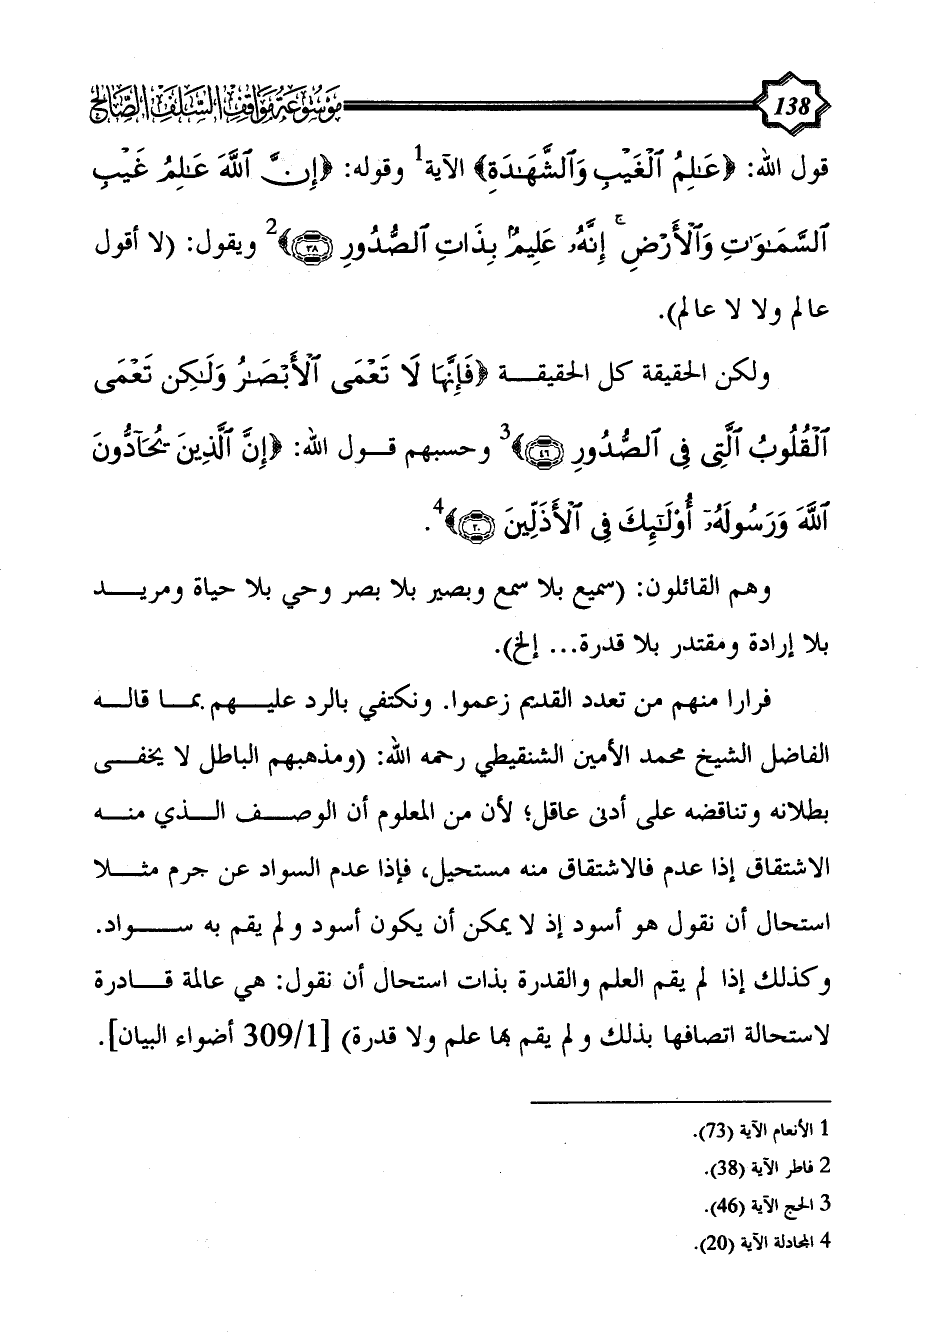 138 موسوعة مواقف السلف الصالح
قول الله: ﴿عَـٰلِمُ ٱلْغَيْبِ وَٱلشَّهَـٰدَةِ﴾ الآية1 وقوله: ﴿إِنَّ ٱللَّهَ عَـٰلِمُ غَيْبِ
ٱلسَّمَـٰوَٰتِ وَٱلْأَرْضِ ۚ إِنَّهُۥ عَلِيمٌۢ بِذَاتِ ٱلصُّدُورِ ٣٨﴾2 ويقول: (لا أقول
عالم ولا لا عالم).
ولكن الحقيقة كل الحقيقــة ﴿فَإِنَّهَا لَا تَعْمَى ٱلْأَبْصَـٰرُ وَلَـٰكِن تَعْمَى
ٱلْقُلُوبُ ٱلَّتِى فِى ٱلصُّدُورِ ٤٦﴾3 وحسبهم قــول الله: ﴿إِنَّ ٱلَّذِينَ يُحَآدُّونَ
ٱللَّهَ وَرَسُولَهُۥٓ أُو۟لَـٰٓئِكَ فِى ٱلْأَذَلِّينَ ٢٠﴾4.
وهم القائلون: (سميع بلا سمع وبصير بلا بصر وحي بلا حياة ومريــد
بلا إرادة ومقتدر بلا قدرة... إلخ).
فرارا منهم من تعدد القديم زعموا. ونكتفي بالرد عليــهم بمــا قالــه
الفاضل الشيخ محمد الأمين الشنقيطي رحمه الله: (ومذهبهم الباطل لا يخفــى
بطلانه وتناقضه على أدنى عاقل؛ لأن من المعلوم أن الوصــف الــذي منــه
الاشتقاق إذا عدم فالاشتقاق منه مستحيل، فإذا عدم السواد عن جرم مثــلا
استحال أن نقول هو أسود إذ لا يمكن أن يكون أسود ولم يقم به ســواد.
وكذلك إذا لم يقم العلم والقدرة بذات استحال أن نقول: هي عالمة قــادرة
لاستحالة اتصافها بذلك ولم يقم بها علم ولا قدرة) [309/1 أضواء البيان].
1 الأنعام الآية (73).
2 فاطر الآية (38).
3 الحج الآية (46).
4 المجادلة الآية (20).